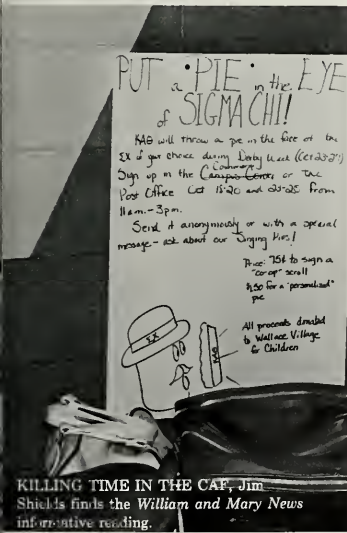 PUT a PIE in the EYE
of SIGMA CHI!
KAΘ will throw a pie in the face of the
ΣX of your choice during Derby Week (Oct 23-27)
Sign up in the Commons
Campus Center or the
Post Office Oct 18-20 and 23-25 from
11am.-3pm.
Send it anonymously or with a special
message - ask about our Singing Pies!
Price: 75¢ to sign a
"co-op" scroll
$1.50 for a "personalized"
pie
All proceeds donated
to Wallace Village
for Children
ΣX
KAΘ
KILLING TIME IN THE CAF, Jim
Shields finds the William and Mary News
informative reading.